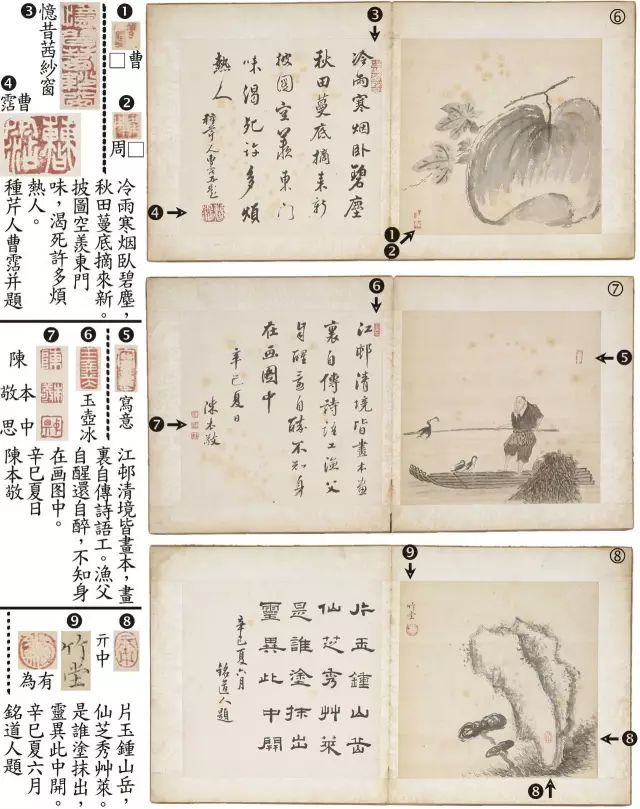 ❸
憶昔茜紗窗
❹
曹霑
❶
□曹
❷
周□
冷雨寒烟臥碧塵，
秋田蔓底摘來新。
披圖空羨東門
味，渴死許多煩
熱人。
種芹人曹霑并題
❼
陳本中
敬思
❻
玉壺冰
❺
寫意
江邨清境皆畫本，畫
裏自傳詩語工。漁父
自醒還自醉，不知身
在画图中。
辛巳夏日
陳本敬
❾
竹堂
有為
❽
亓中
片玉鍾山岳，
仙芝秀艸萊。
是誰塗抹出，
靈異此中開。
辛巳夏六月
銘道人題
❸
⑥
冷雨寒烟卧碧塵
秋田蔓底摘來新
披圖空羨東門
味渴死許多煩
熱人
種芹人曹霑并題
❹
❶
❷
❻
⑦
江邨清境皆畫本畫
裏自傳詩語工漁父
自醒還自醉不知身
在画图中
辛巳夏日
陳本敬
❼
❺
❾
⑧
竹堂
片玉鍾山岳
仙芝秀艸萊
是誰塗抹出
靈異此中開
辛巳夏六月
銘道人題
❽
❽